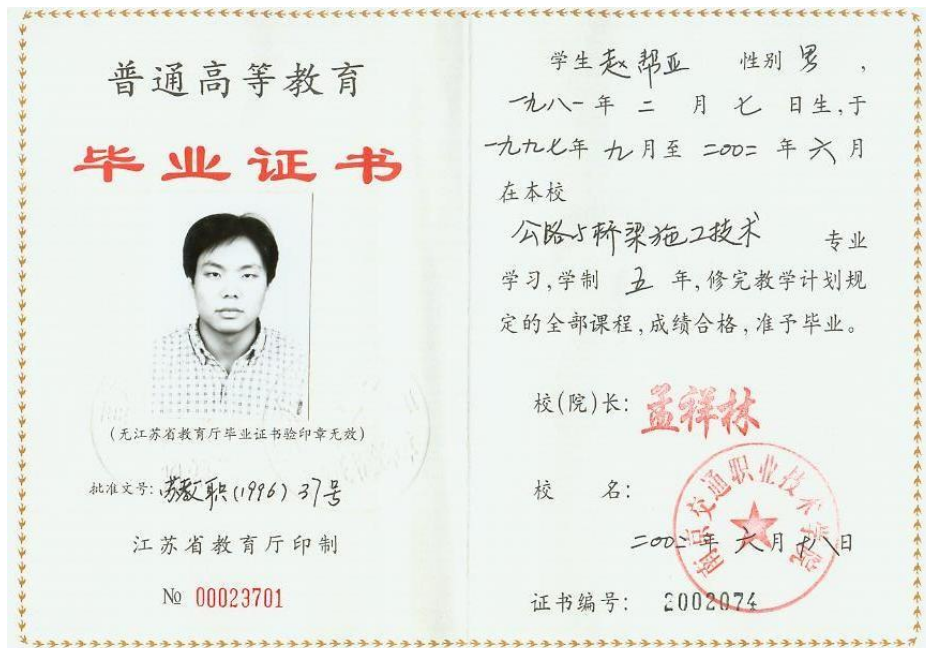 普通高等教育
毕业证书
(无江苏省教育厅毕业证书验印章无效)
批准文号:苏教职(1996)37号
江苏省教育厅印制
№ 00023701
学生赵帮亚 性别男,
一九八一年二月七日生,于
一九九七年九月至二〇〇二年六月
在本校
公路与桥梁施工技术 专业
学习,学制五年,修完教学计划规
定的全部课程,成绩合格,准予毕业。
校(院)长:孟祥林
校 名:
南京交通职业技术学院
二〇〇二年六月十八日
证书编号: 2002074